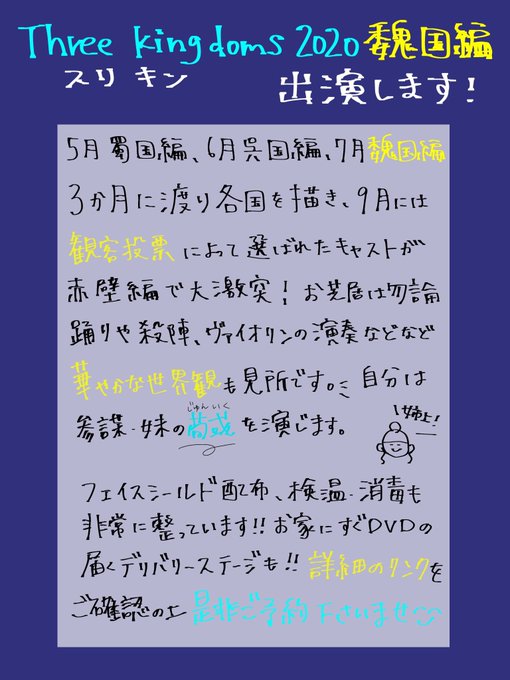 Three kingdoms 2020 魏国編
スリ キン
出演します!
5月 蜀国編、6月 呉国編、7月 魏国編
3か月に渡り各国を描き、9月には
観客投票によって選ばれたキャストが
赤壁編で大激突! お芝居は勿論
踊りや殺陣、ヴァイオリンの演奏などなど
華やかな世界観も見所です。 自分は
じゅんいく
参謀・妹の荀彧を演じます。
姉上!
フェイスシールド配布、検温・消毒も
非常に整っています!! お家にすぐDVDの
届くデリバリーステージも!! 詳細のリンクを
ご確認の上 是非ご予約下さいませ